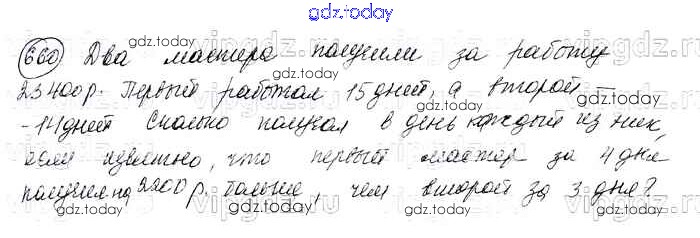 gdz.today
660 Два мастера получили за работу
gdz.today gdz.today
23400р. Первый работал 15 дней, а второй —
gdz.today gdz.today
-14дней Сколько получал в день каждый из них
gdz.today gdz.today
если известно, что первый мастер за 4 дне
gdz.today gdz.today
получил на 2200 р. больше, чем второй за 3 дня?
gdz.today gdz.today